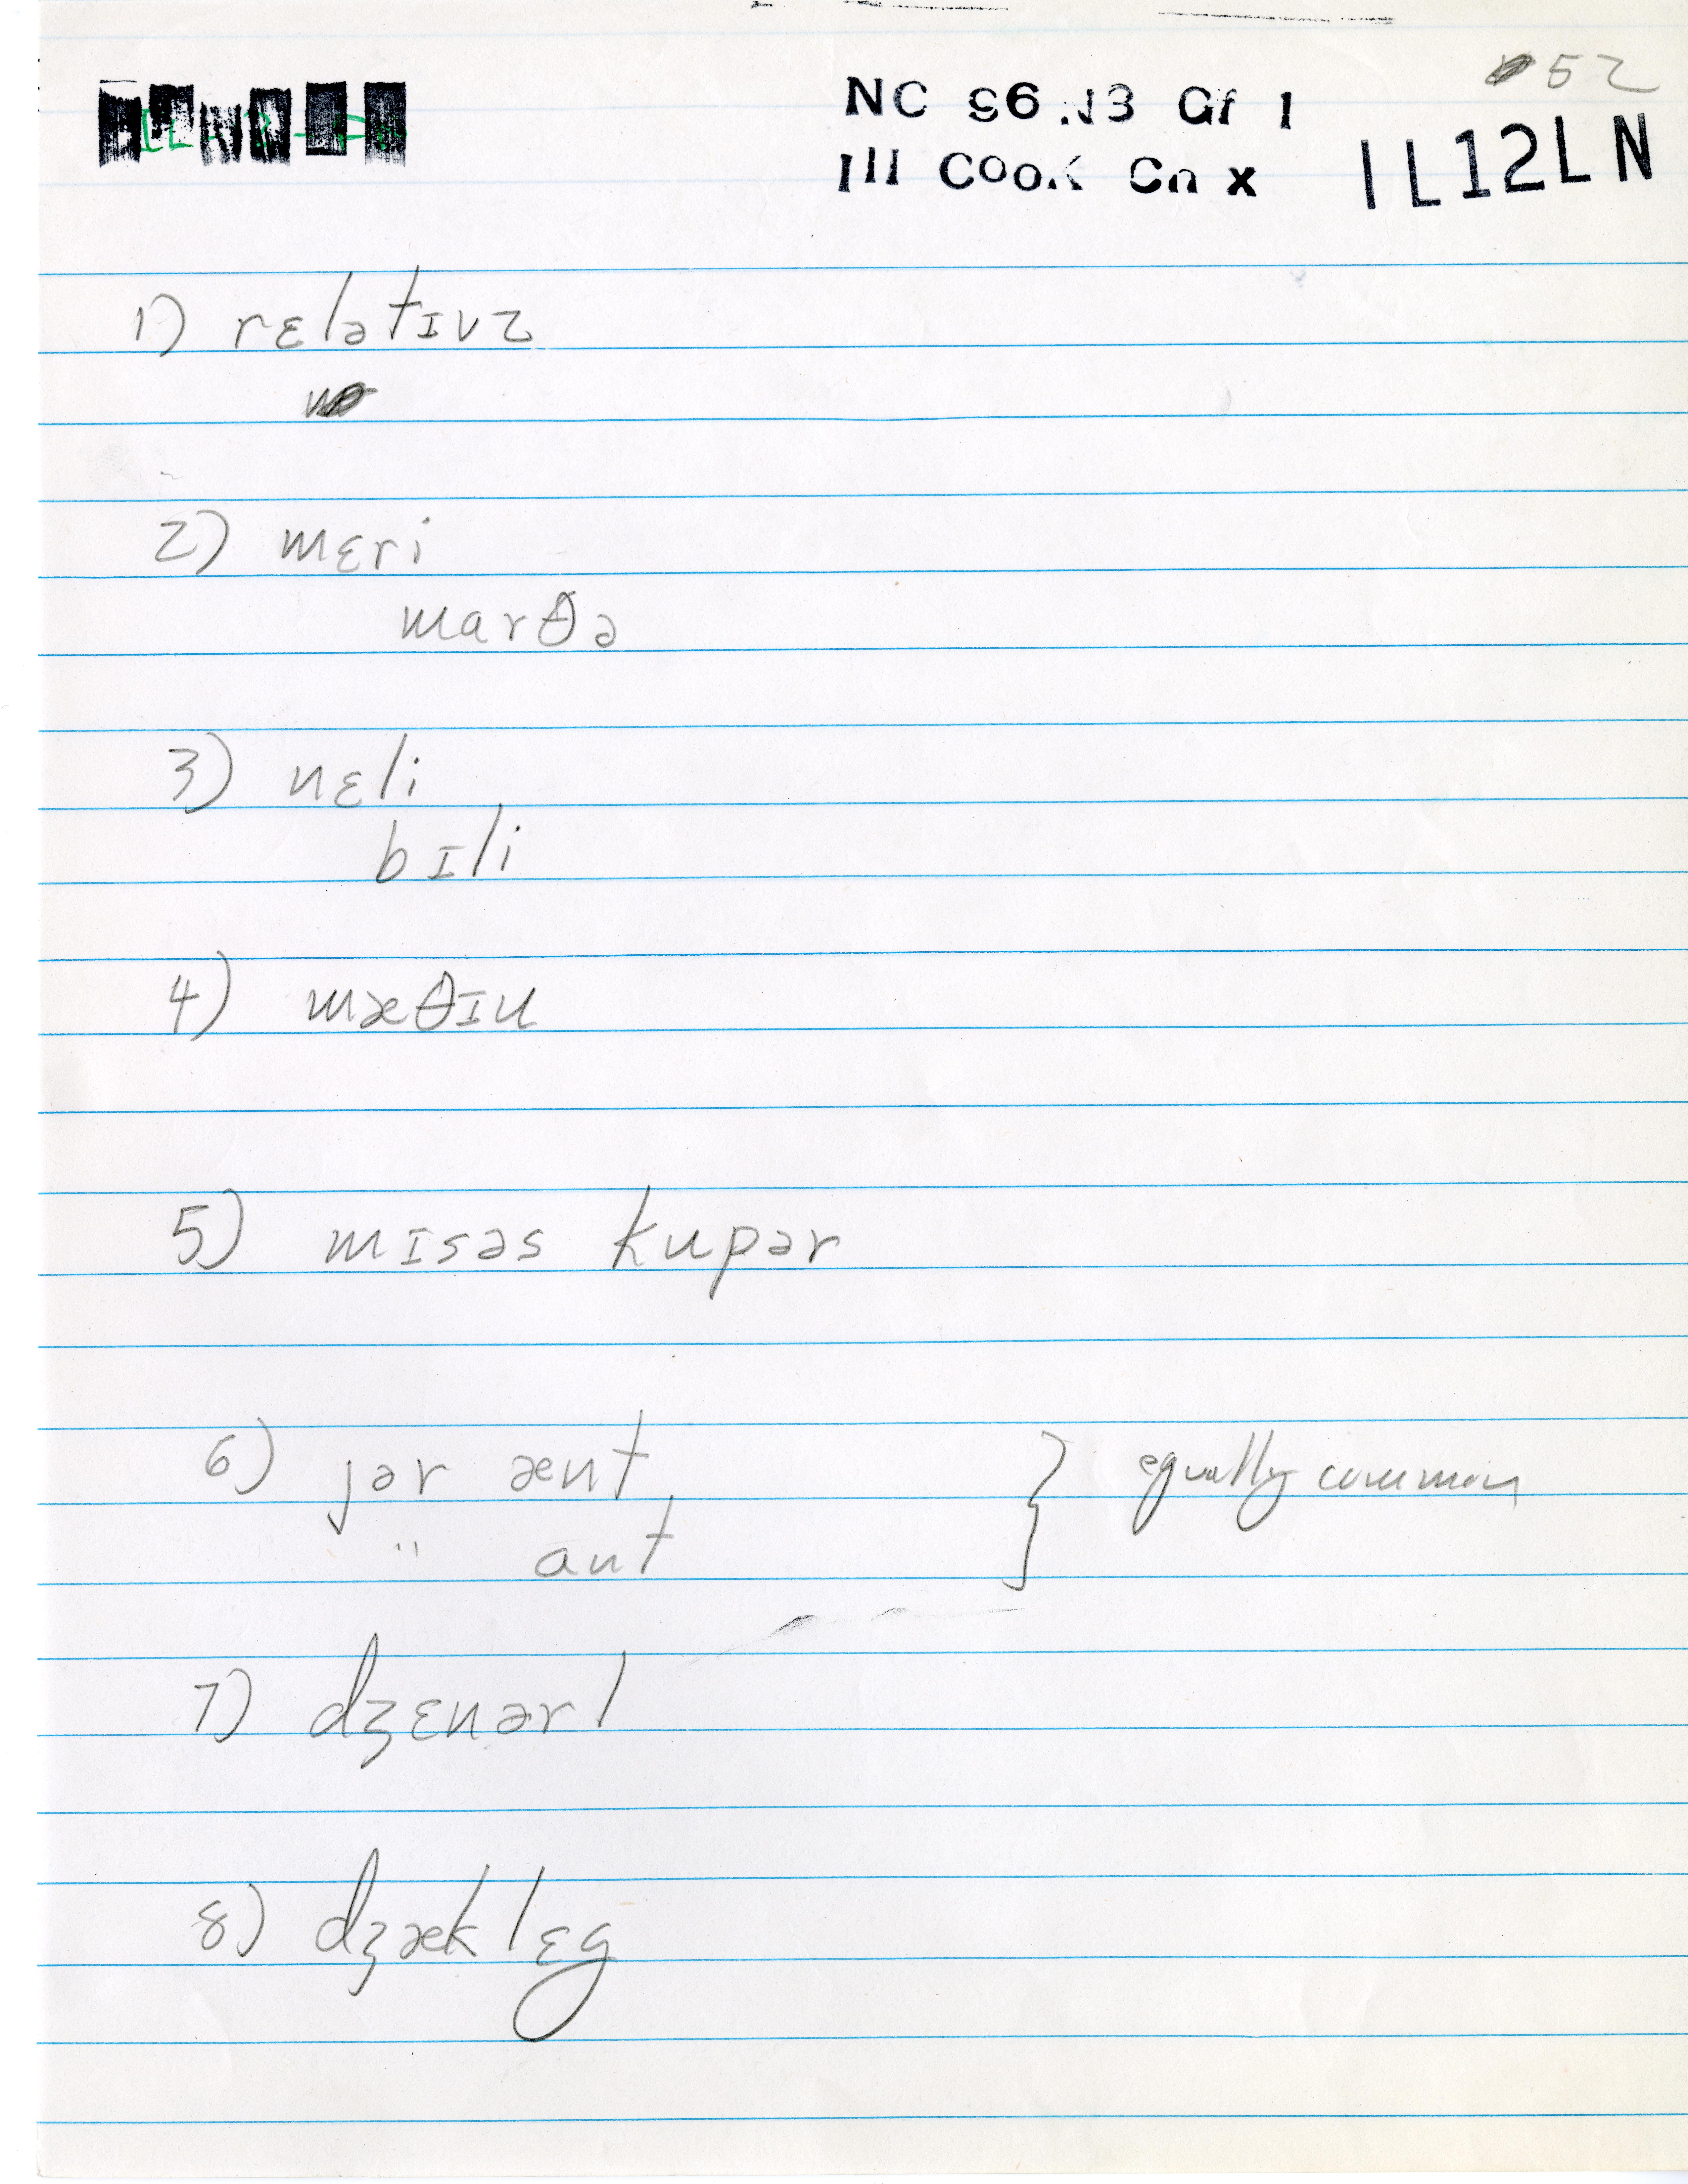 52
NC 96.J3 Gf 1
Ill Cook Cn x
IL12LN
1) rɛlətɪvz
2) mɛri
marθə
3) nɛli
bɪli
4) mæθɪu
5) mɪsəs kupər
6) jər ænt } equally common
" ant
7) dʒɛnərl
8) dʒæk lɛg